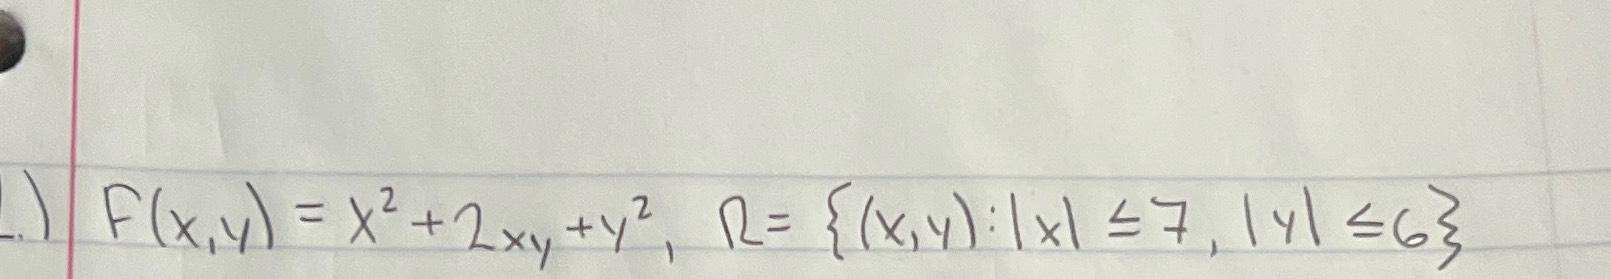 .) F(x,y) = x² + 2xy + y², R = {(x,y) : |x| ≤ 7, |y| ≤ 6}